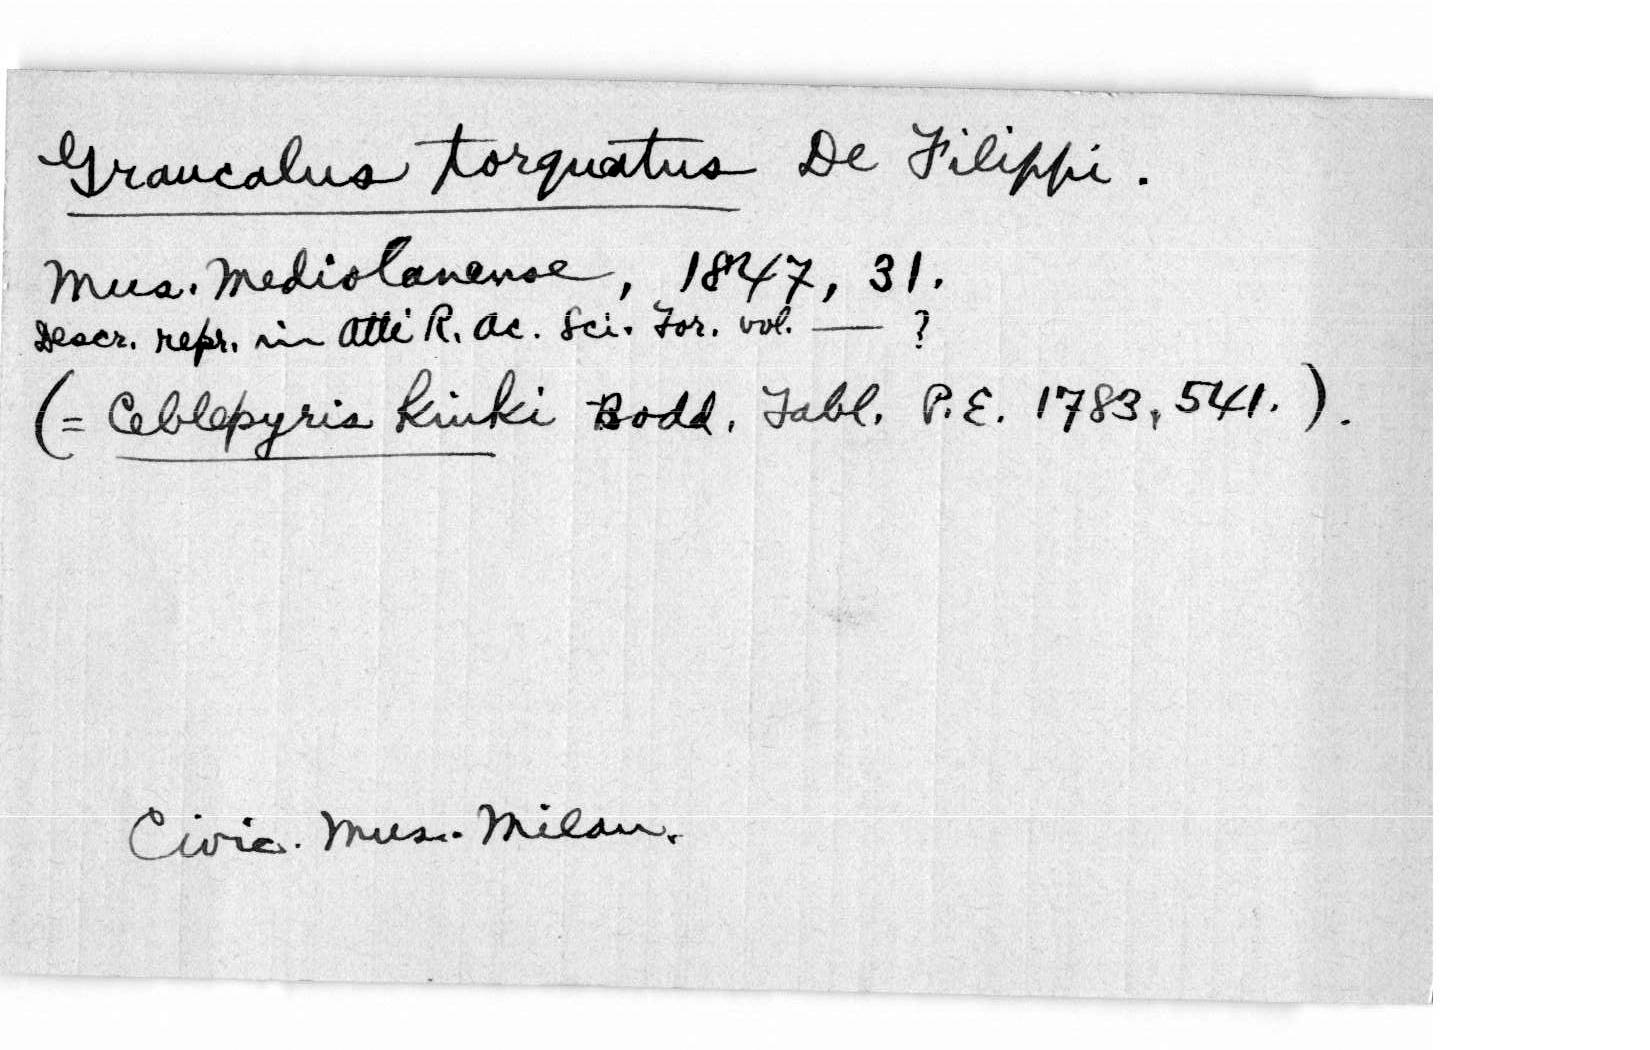 Graucalus torquatus De Filippi.
Mus. Mediolanense, 1847, 31.
Descr. repr. in Atti R. Ac. Sci. Tor. vol. — ?
(= Ceblepyris kinki Bodd. Tabl. P.E. 1783, 541.).
Civic. Mus. Milan.